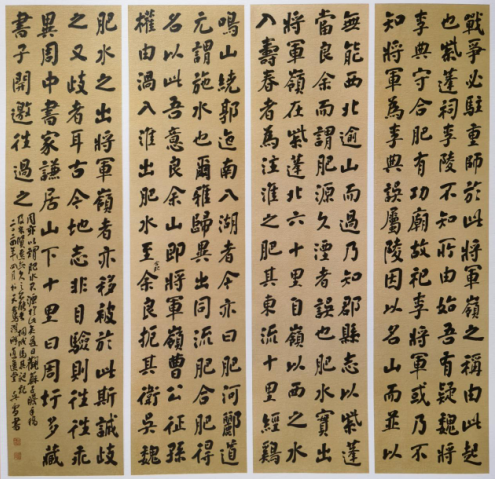 戰爭必駐重師於此將軍嶺之稱由此起
也紫蓬祠李陵不知所由始吾有疑魏將
李典守合肥有功廟故祀李將軍或乃不
知將軍為李典誤屬陵因以名山而並以
無能西北逾山而過乃知郡縣志以紫蓬
當良余而謂肥源久湮者誤也肥水實出
將軍嶺在紫蓬北六十里嶺以西之水
入壽春者為注淮之肥其東流十里經鷄
鳴山繞郭迤南入湖者今亦曰肥河酈道
元謂施水也爾雅歸異出同流肥合肥得
名以此吾意良余山即將軍嶺曹公征孫
權由渦入淮出肥水至余良扼其衝吳魏
肥水之出將軍嶺者亦移被於此斯誠歧
之又歧者耳古今地志非目驗則往往乖
異周中書家謙居山下十里曰周圩多藏
書子開邀往過之